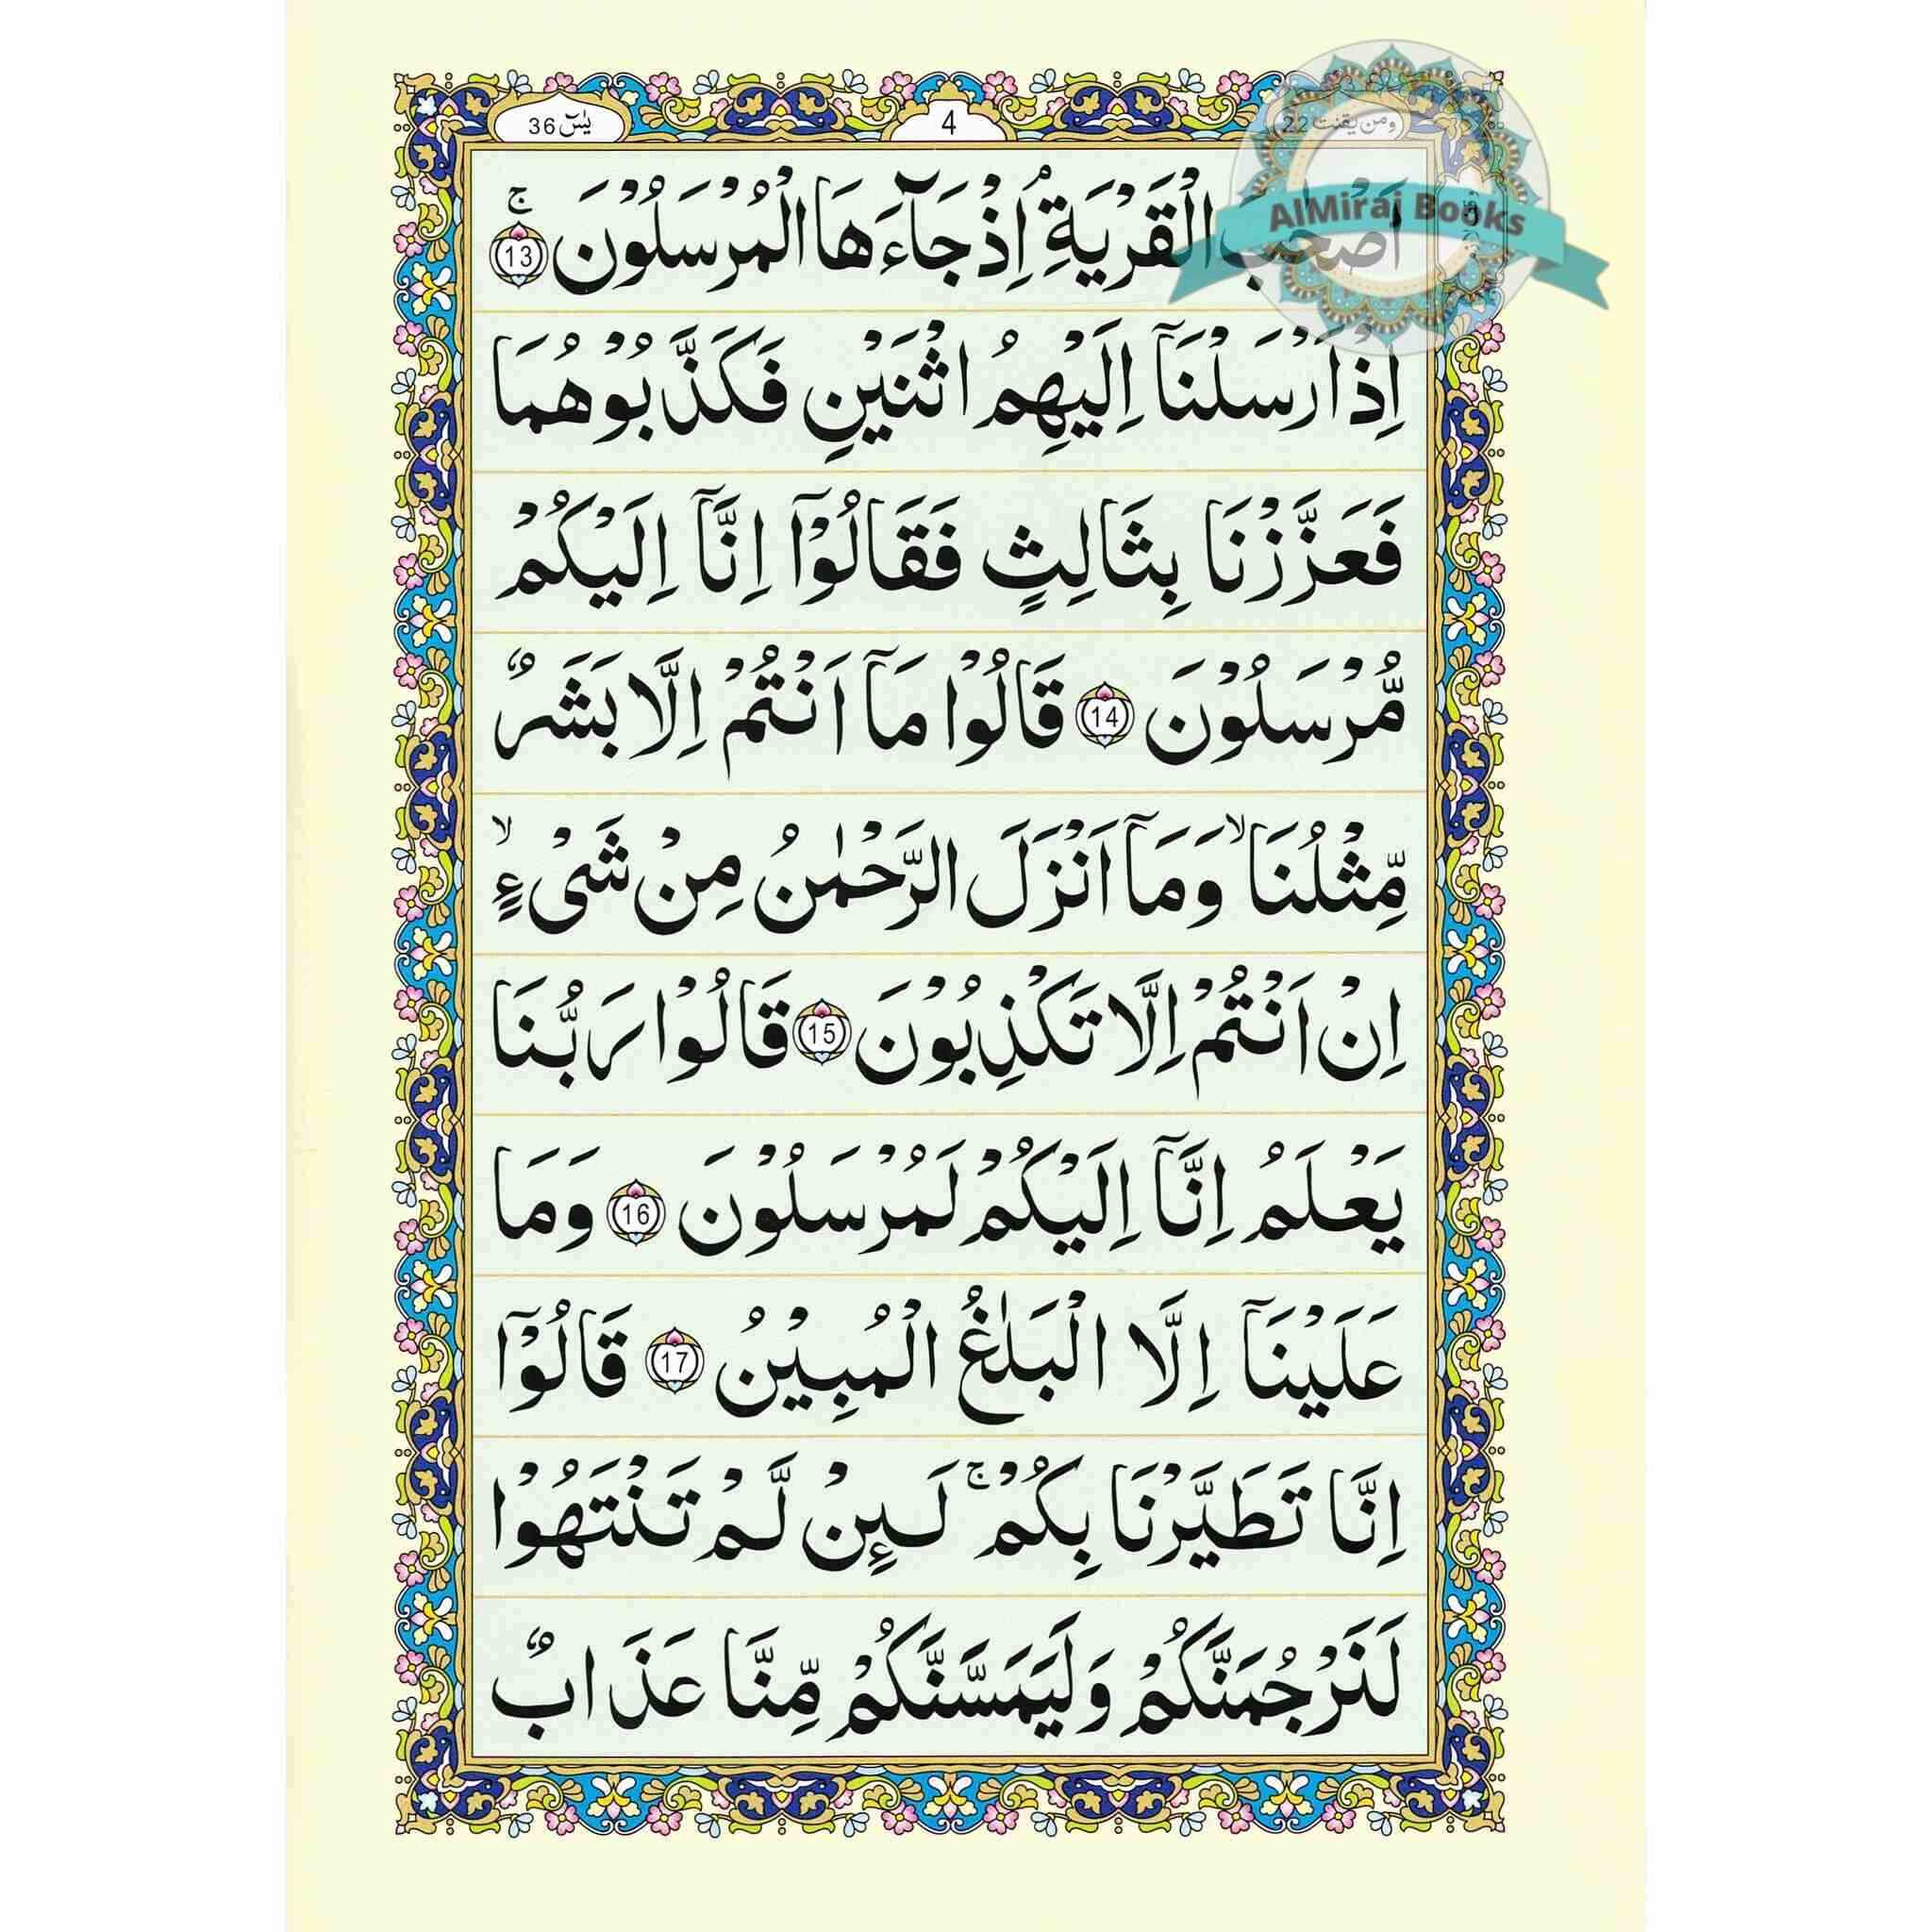 ومن يقنت 22
4
يٰسٓ 36
AlMiraj Books
اَصْحٰبَ الْقَرْيَةِ ۘ اِذْ جَآءَهَا الْمُرْسَلُوْنَ ۚ 13
اِذْ اَرْسَلْنَآ اِلَيْهِمُ اثْنَيْنِ فَكَذَّبُوْهُمَا
فَعَزَّزْنَا بِثَالِثٍ فَقَالُوْٓا اِنَّآ اِلَيْكُمْ
مُّرْسَلُوْنَ 14 قَالُوْا مَآ اَنْتُمْ اِلَّا بَشَرٌ
مِّثْلُنَا ۙ وَمَآ اَنْزَلَ الرَّحْمٰنُ مِنْ شَیْءٍ ۙ
اِنْ اَنْتُمْ اِلَّا تَكْذِبُوْنَ 15 قَالُوْا رَبُّنَا
يَعْلَمُ اِنَّآ اِلَيْكُمْ لَمُرْسَلُوْنَ 16 وَمَا
عَلَيْنَآ اِلَّا الْبَلٰغُ الْمُبِيْنُ 17 قَالُوْٓا
اِنَّا تَطَيَّرْنَا بِكُمْ ۚ لَئِنْ لَّمْ تَنْتَهُوْا
لَنَرْجُمَنَّكُمْ وَلَيَمَسَّنَّكُمْ مِّنَّا عَذَابٌ